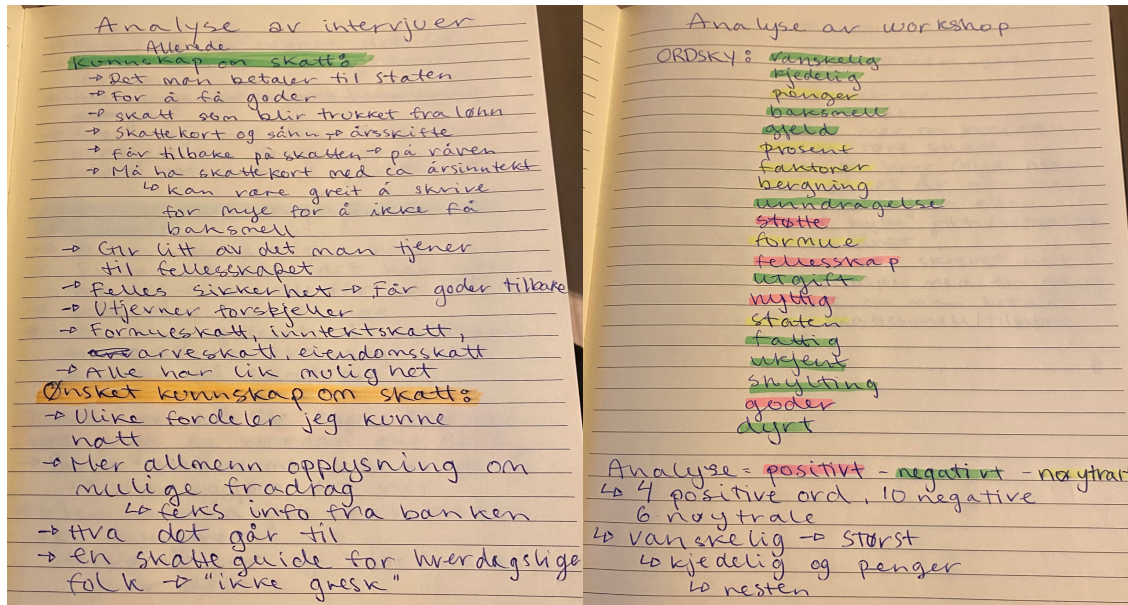 Analyse av intervjuer
Allerede
kunnskap om skatt:
→ Det man betaler til staten
→ For å få goder
→ skatt som blir trukket fra lønn
→ Skattekort og sånn → årsskifte
→ Får tilbake på skatten → på våren
→ Må ha skattekort med ca årsinntekt
↳ kan være greit å skrive
for mye for å ikke få
baksmell
→ Gir litt av det man tjener
til fellesskapet
→ Felles sikkerhet → Får goder tilbake
→ Utjevner forskjeller
→ Formueskatt, inntektskatt,
arveskatt, eiendomsskatt
→ Alle har lik mulighet
Ønsket kunnskap om skatt:
→ Ulike fordeler jeg kunne
hatt
→ Mer allmenn opplysning om
mulige fradrag
↳ feks info fra banken
→ Hva det går til
→ en skatteguide for hverdagslige
folk → "ikke gresk"
Analyse av workshop
ORDSKY: vanskelig
kjedelig
penger
baksmell
gjeld
prosent
faktorer
bergning
unndragelse
støtte
formue
fellesskap
utgift
nyttig
staten
fattig
ukjent
snylting
goder
dyrt
Analyse = positivt - negativt - nøytralt
↳ 4 positive ord, 10 negative
6 nøytrale
↳ vanskelig → størst
↳ kjedelig og penger
↳ nesten